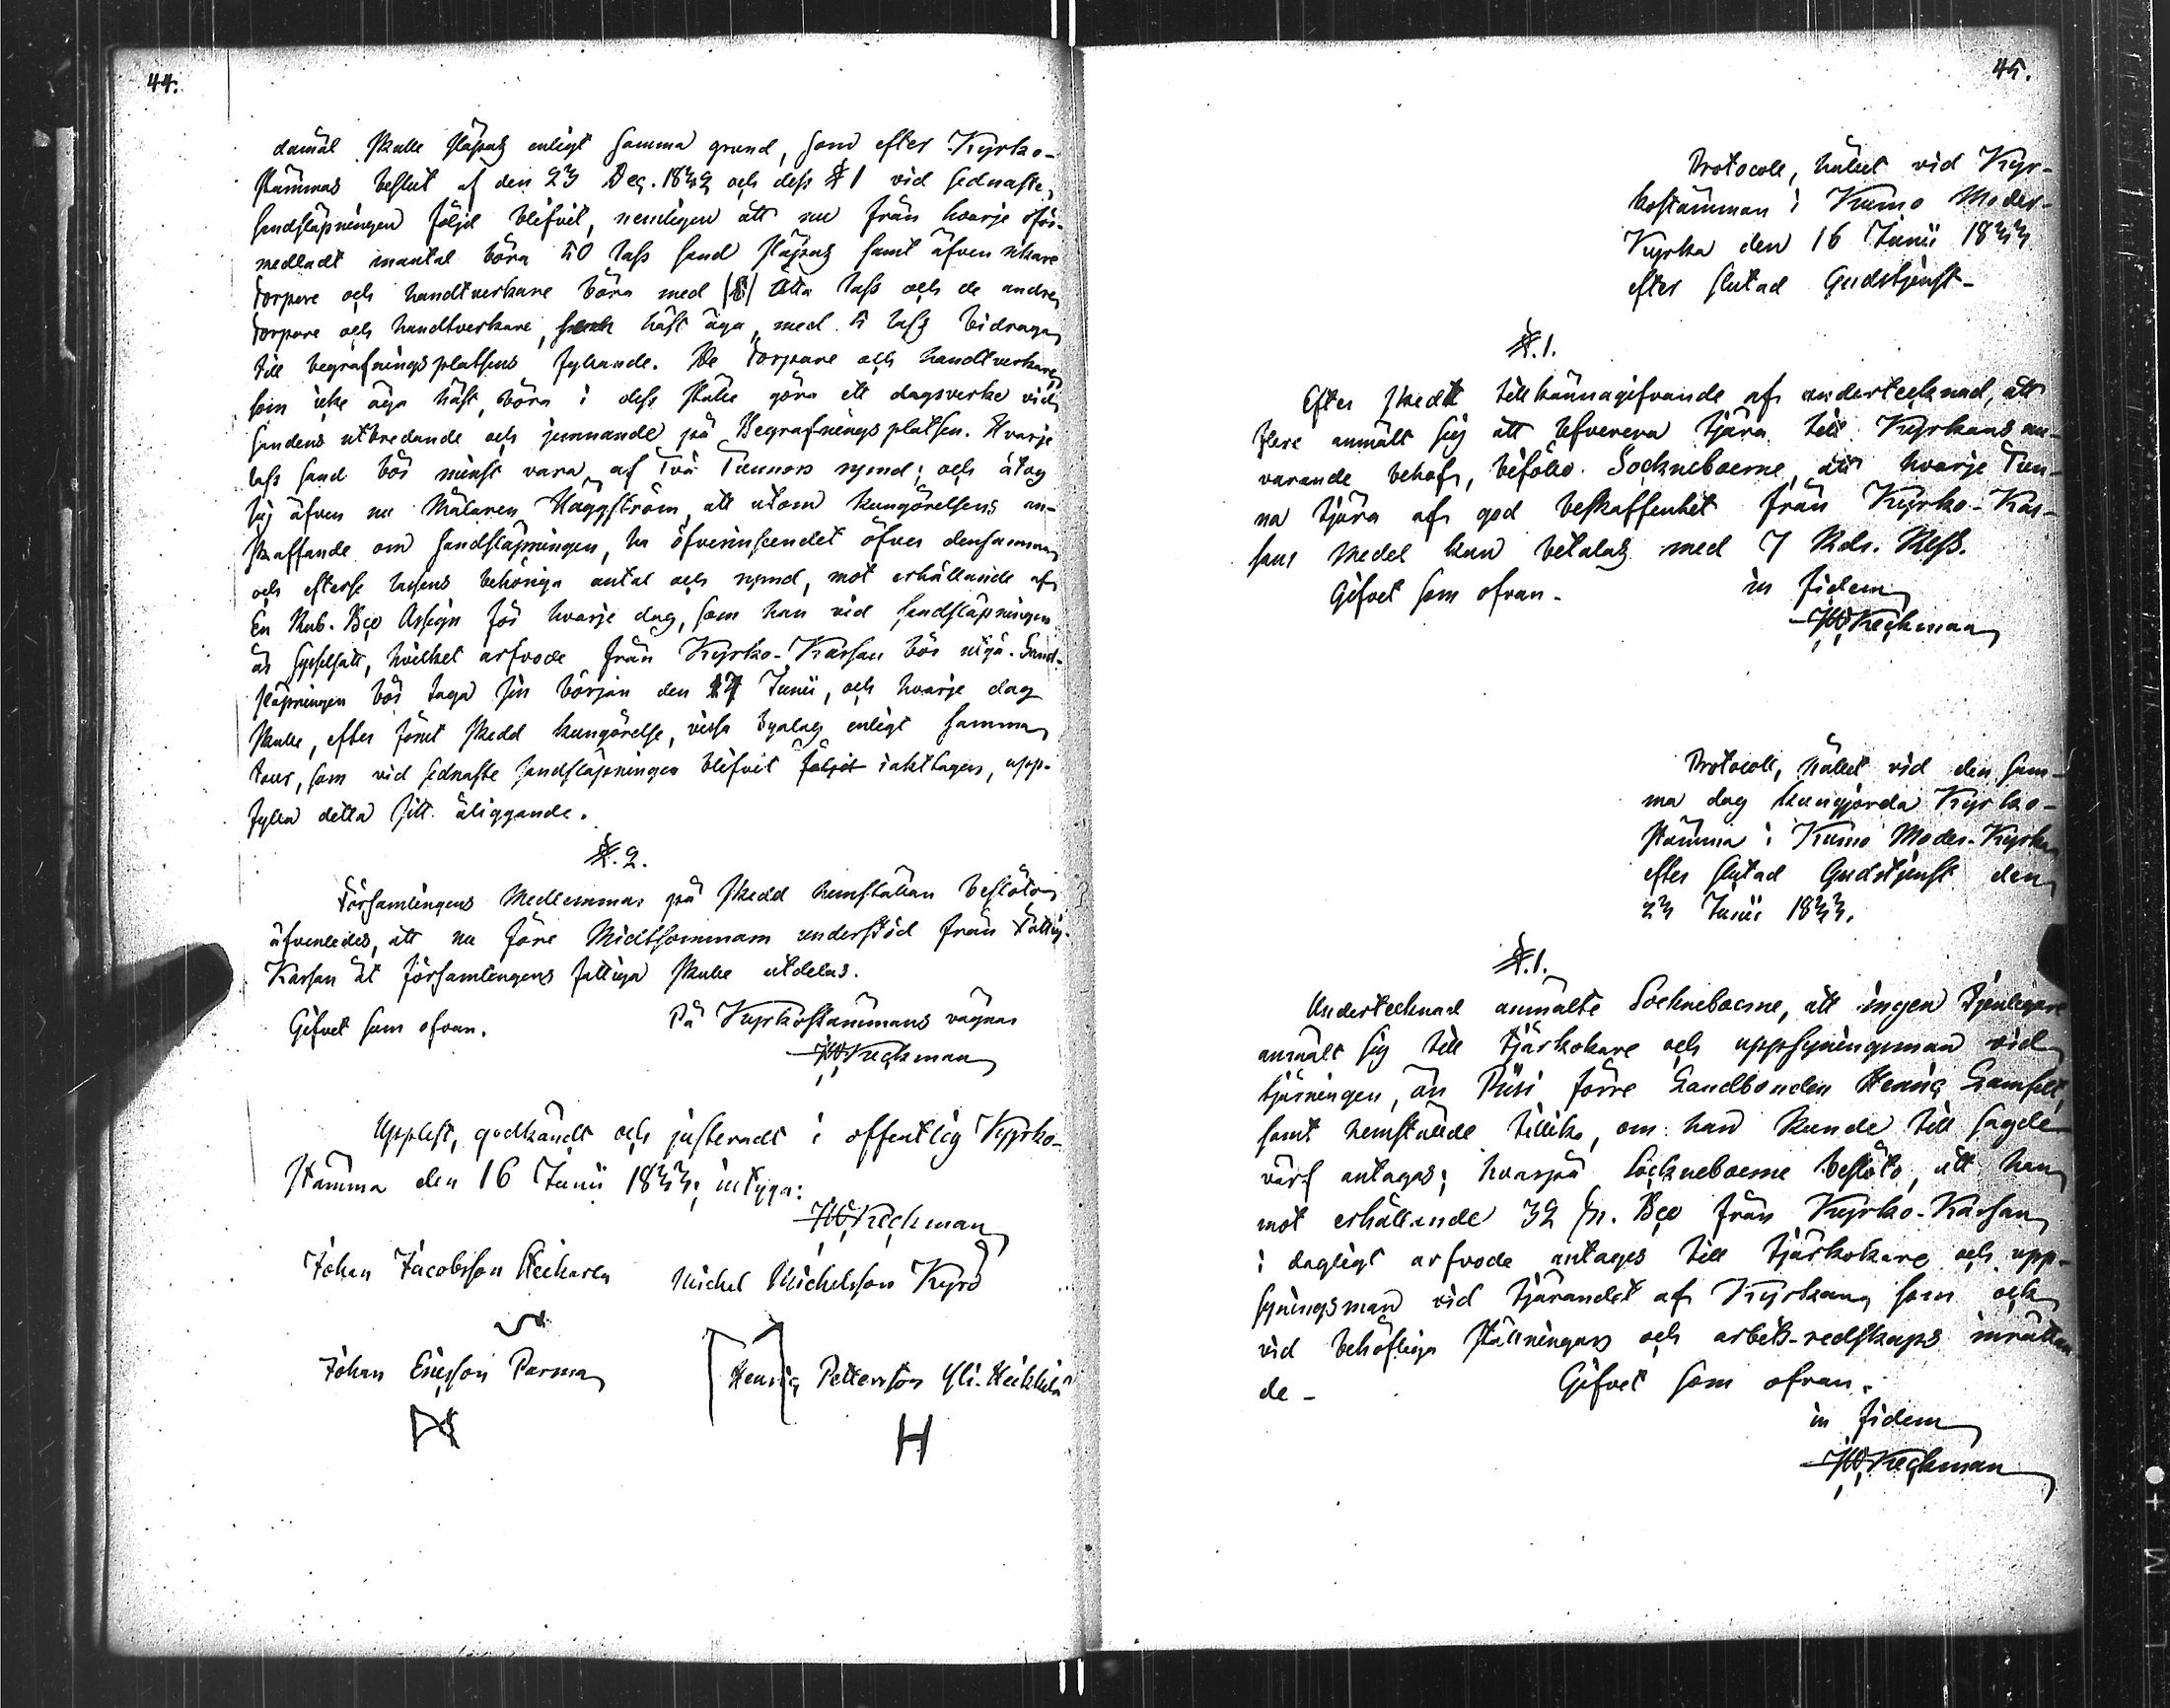 44.
damål skulle släpas enligt samma grund, som efter Kyrko-
stämmas beslut af den 23 Dec. 1832 och dess § 1 vid sednaste
sandsläpningen följd blifvit, nemligen att nu från hvarje oför-
medladt mantal böra 50 lass sand släpas samt äfven rikare
torpare och handtverkare böra med (8) Åtta lass och de andre
torpare och handtverkare, som häst äga, med 5 lass bidraga
till begrafningsplatsens fyllande. De torpare och handtverkare
som icke äga häst, böra i dess ställe göra ett dagsverke vid
sandens utbredande och jemnande på Begrafningsplatsen. Hvarje
lass sand bör minst vara af Två Tunnors rymd; och åtog
sig äfven nu Målaren Häggström, att utom kungörelsens an-
skaffande om sandsläpningen, ha öfverinseendet öfver densamma
och efterse lassens behöriga antal och rymd, mot erhållande af
En Rub. Bco Assign för hvarje dag, som han vid sandsläpningen
är sysselsatt, hvilket arfvode från Kyrko-Kassan bör utgå. Sand-
släpningen bör taga sin början den 17 Junii, och hvarje dag
skulle, efter förut skedd kungörelse, vissa byalag enligt samma
tour, som vid sednaste sandsläpningen blifvit följd iakttagen, upp-
fylla detta sitt åliggande.
§. 2.
Församlingens Medlemmar på skedd hemställan beslöto
äfvenledes, att nu före Midtsommarn understöd från Fattig-
Kassan åt församlingens fattiga skulle utdelas.
Gifvet som ofvan. På Kyrkostämmans vägnar
JW Keckman
Upplest, godkändt och justeradt i offentlig Kyrko-
stämma den 16 Junii 1833; intyga:
JW Keckman
Johan Jacobsson Michel Michelsson Kyrö
Johan Ericsson Parma Henric Pettersson Yli-Heikkilä
H
45.
Protocoll, hållet vid Kyr-
kostämman i Kumo Moder-
Kyrka den 16 Junii 1833
efter slutad Gudstjenst-
§. 1.
Efter skedt tillkännagifvande af undertecknad, att
flere anmält sig att lefverera tjära till Kyrkans nu-
varande behof, biföllo Sockneboerne, att hvarje Tun-
na tjära af god beskaffenhet från Kyrko-Kas-
sans medel kan betalas med 7 Rdr. Rgss.
Gifvet som ofvan. in fidem
JW Keckman
Protocoll, hållet vid den sam-
ma dag kungjorda Kyrko-
stämma i Kumo Moder-Kyrka
efter slutad Gudstjenst den
23 Junii 1833.
§. 1.
Undertecknad anmälte Sockneboerne, att ingen tjenligare
anmält sig till tjärkokare och uppsyningsman vid
tjärningen, än Piisi förre Landbonden Henric
samt hemställde tillika, om han kunde till sagde
värf antagas; hvarpå Sockneboerne beslöto, att han
mot erhållande 32 sk. Bco från Kyrko-Kassan
i dagligt arfvode antages till tjärkokare och upp-
syningsman vid tjärandet af Kyrkan, som ock
vid behöfliga ställningars och arbets-redskaps inrättan-
de- Gifvet som ofvan.
in fidem
JW Keckman